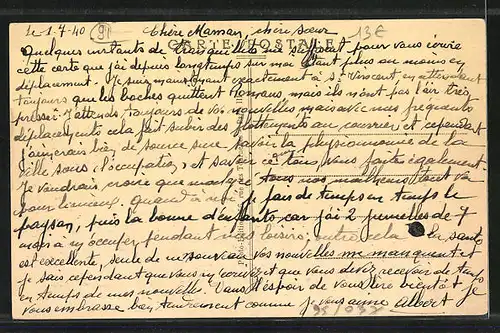 Le 1.7.40 (91) Chère Maman, chère sœur 13€
CARTE POSTALE
Quelques instants de tranquillité me suffisent pour vous écrire
cette carte que j'ai depuis longtemps sur moi étant plus ou moins en
déplacement. Je suis maintenant exactement à St Vincent en attendant
toujours que les boches quittent mais ils n'ont pas l'air très
pressés. J'attends toujours de vos nouvelles mais avec mes fréquents
déplacements cela fait subir des flottements au courrier et cependant
j'aimerais bien de source sûre savoir la physionomie de la
ville sous l'occupation et savoir ce que vous faites également.
Je voudrais croire que malgré tous nos malheurs tout va
pour le mieux. Quand à moi je fais de temps en temps le
paysan, puis la bonne d'enfants car j'ai 2 jumelles de 7
mois à m'occuper pendant mes loisirs, outre cela la santé
est excellente, seule de nouveau vos nouvelles me manquent et
je sais cependant que vous m'écrivez et que vous devez recevoir de temps
en temps de mes nouvelles. Dans l'espoir de vous lire bientôt je
vous embrasse bien tendrement comme je vous aime Albert